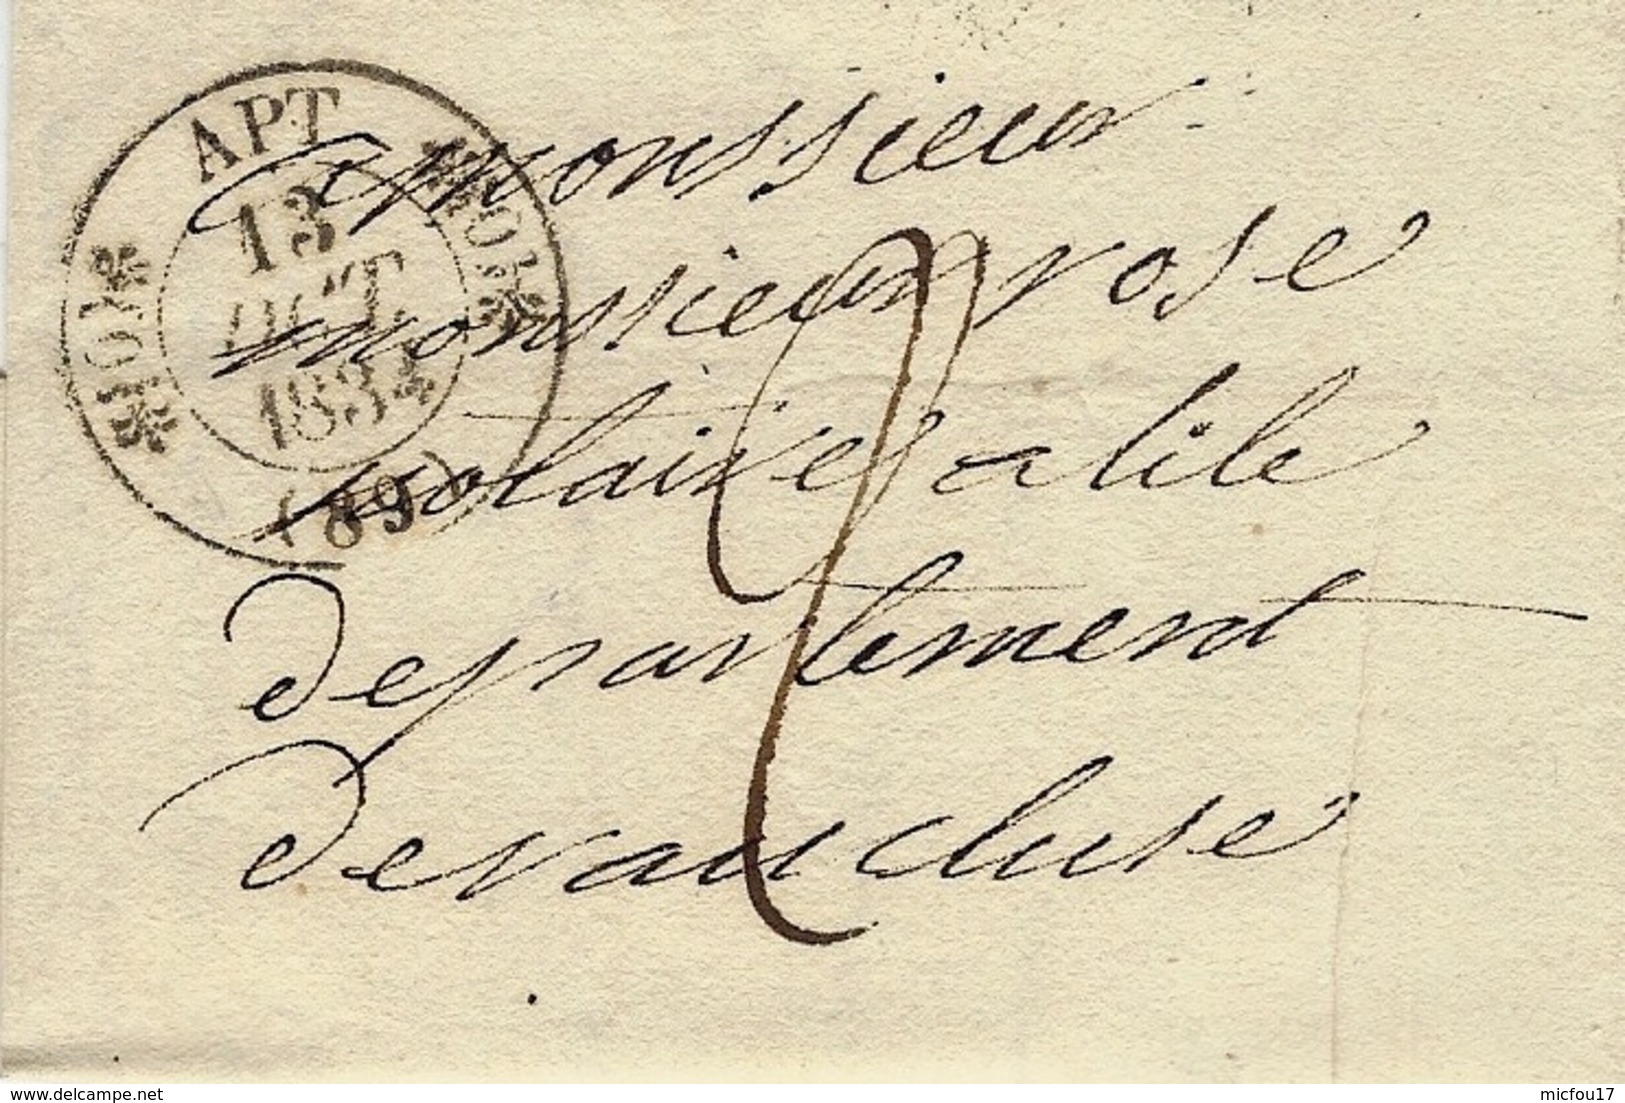 APT
13
OCT.
1834
(89)
a monsieur
monsieur rose
notaire a lile
departement
devaucluse
2
delcampe.net
micfou17